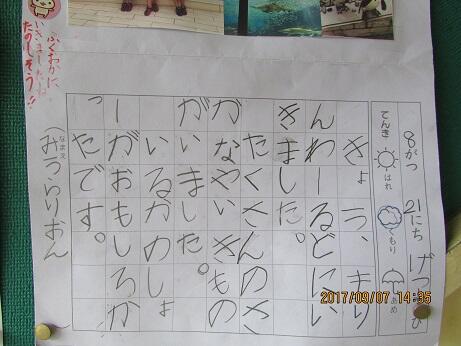 8がつ 21にち げつようび
てんき はれ くもり あめ
きょう、まり
んわーるどにい
きました。
たくさんのさ
かなやいきもの
がいました。
いるかのしょ
ーがおもしろか
ったです。
なまえ
ふくおかに
いきましたね
たのしそう!!
2017/09/07 14:35